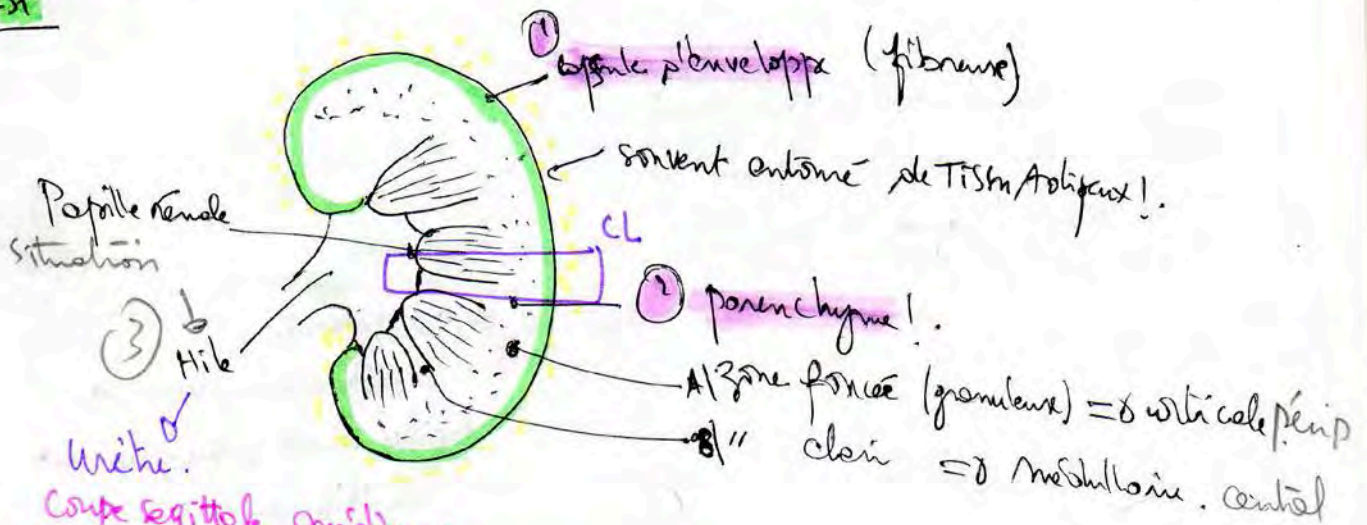 ① capsule d'enveloppe (fibreuse)
souvent entouré de Tissu Adipeux!.
Papille rénale
situation
CL
② parenchyme!.
③
Hile
A/ Zône foncée (granuleuse) => corticale périp
B/ " clair => médullaire. central
Urètre.
Coupe sagittale